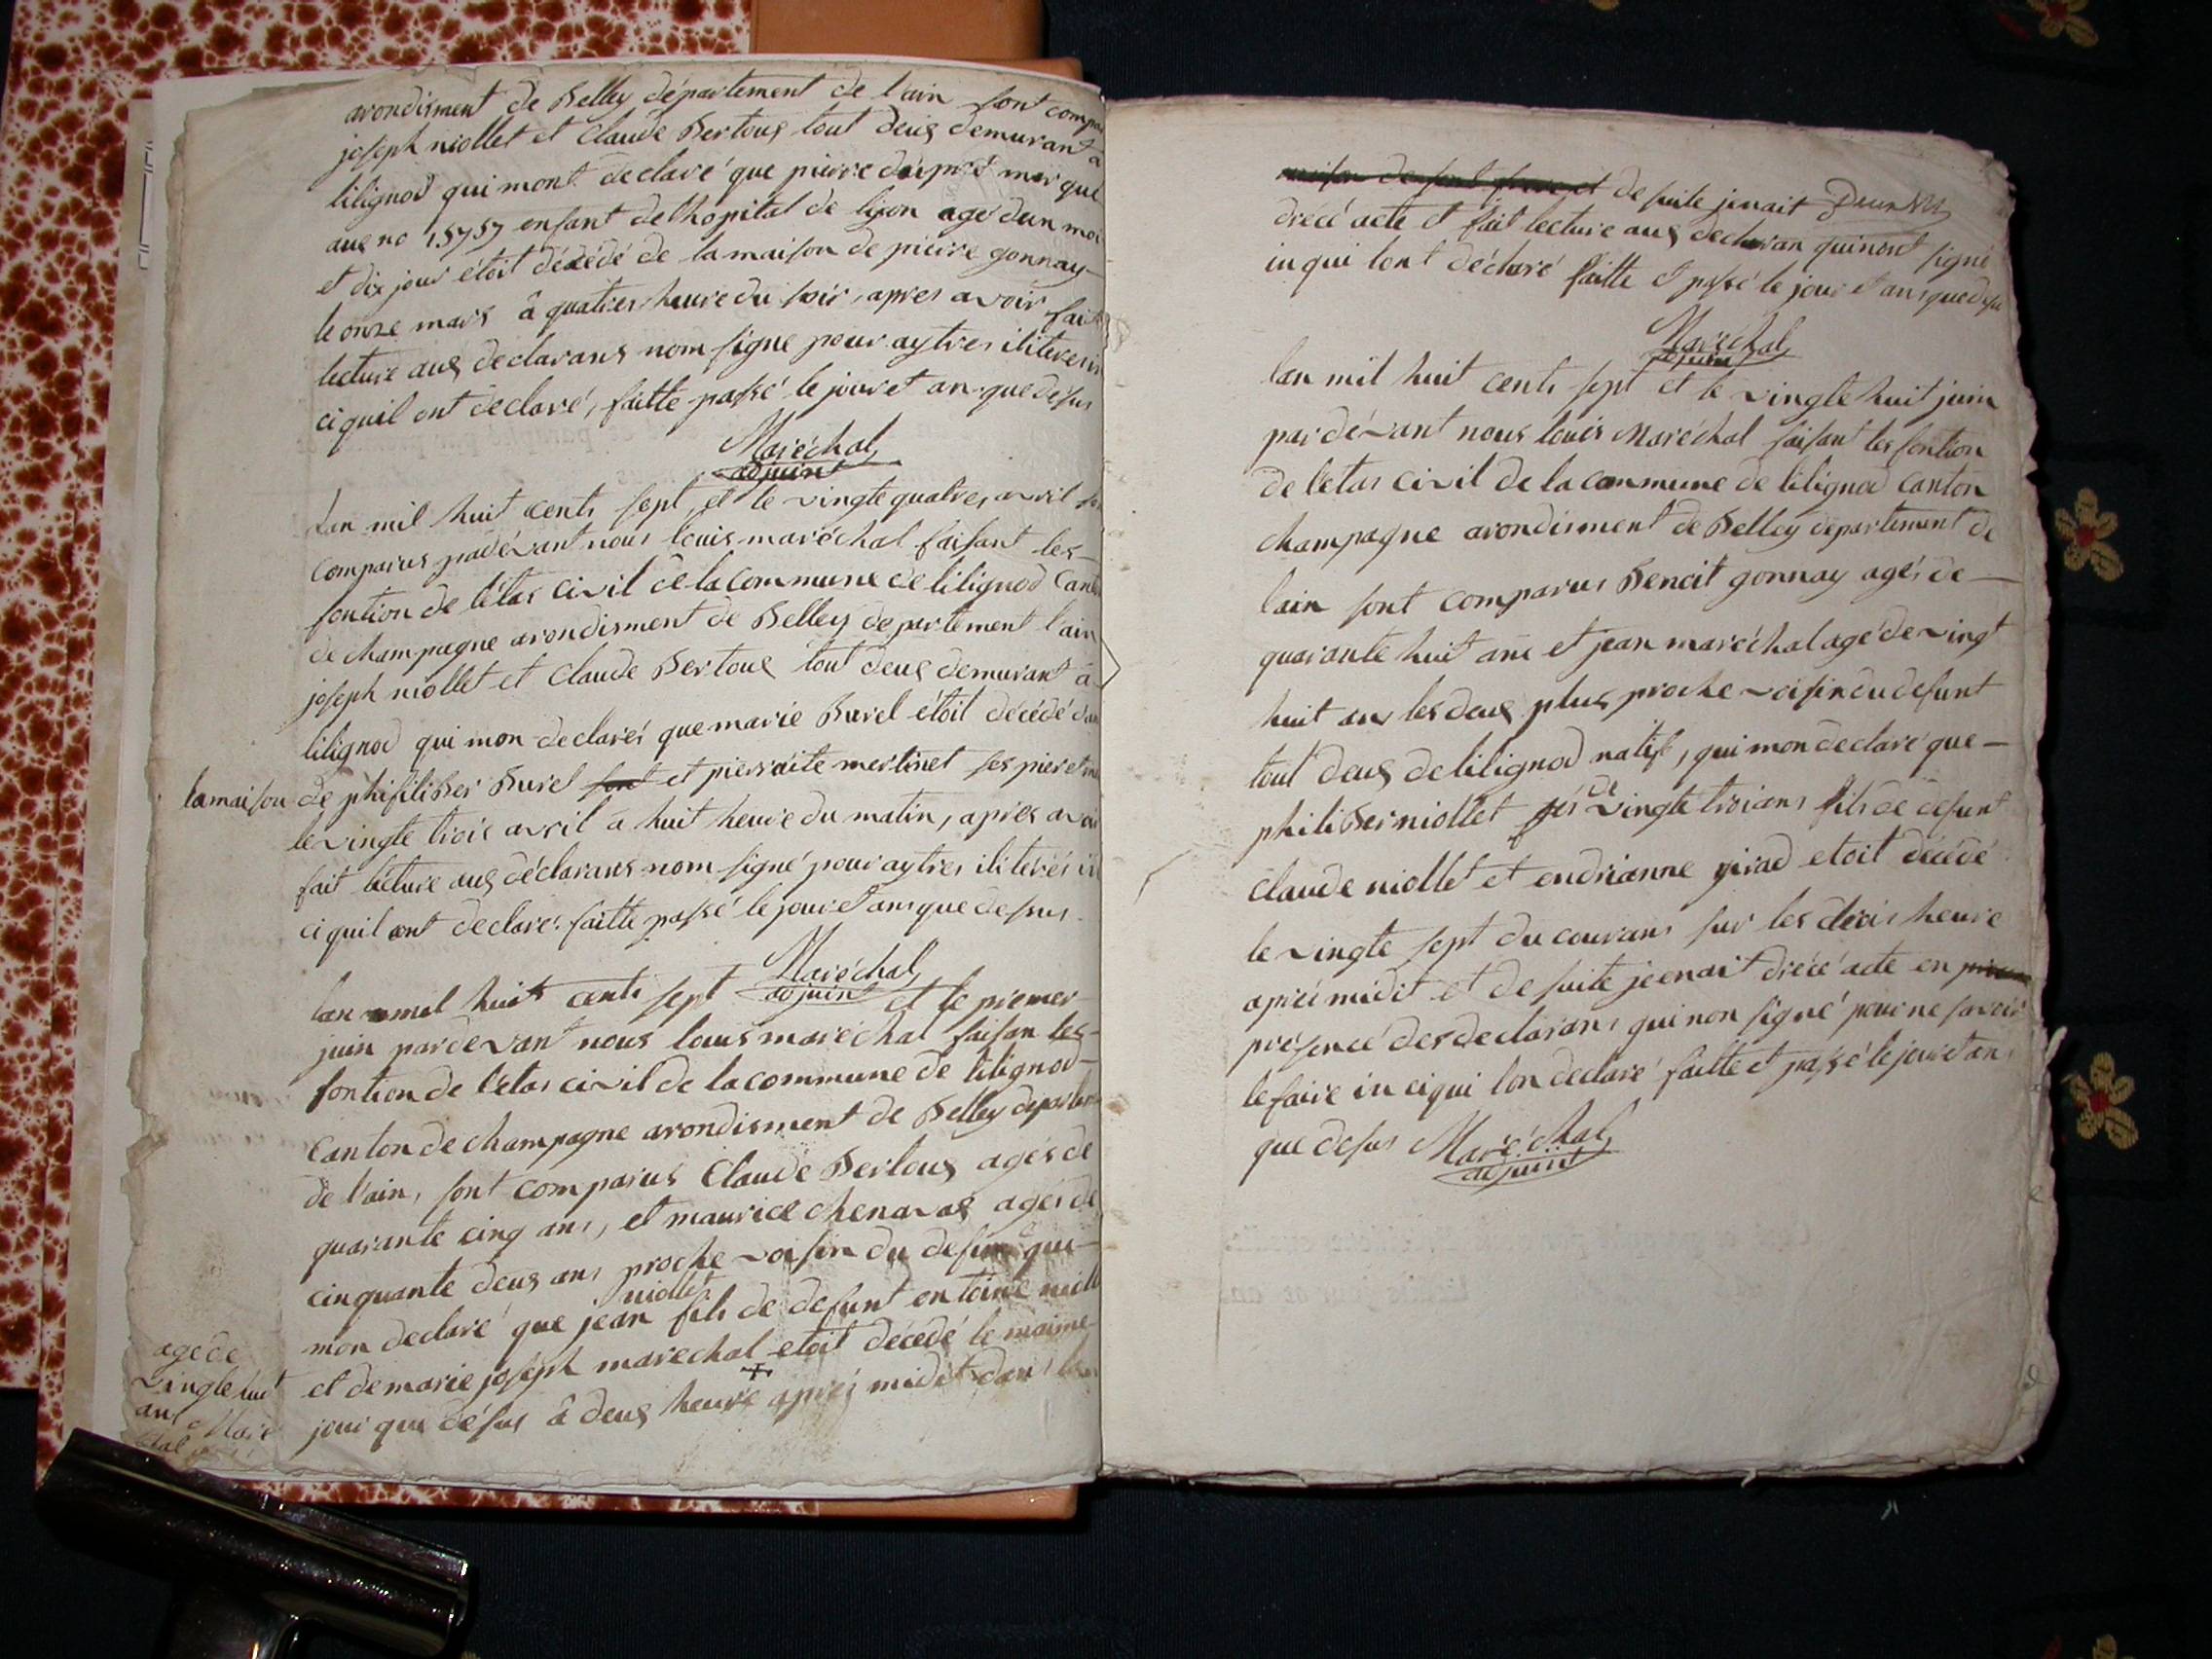 arondisment de Belley département de l'ain sont compa
joseph niollet et Claude Bertous tout deus demurant a
lilignod qui mont declaré que pierre marqué
aus no 15757 enfant de lhopital de lyon agé dun moi
et dix jour étoit décédé de la maison de pierre gonnay
le onze mars â quatres heure du soir, apres avoir fait
lecture aus declarans nom signe pour aytres iliteres in
ci quil ont declaré, faitte passé le jour et an que desus
Maréchal
adjuint
Lan mil huit cents sept, et le vingte quatres avril so
comparus padévant nous louis maréchal faisant les
fontion de létas civil de la commune de lilignod Cant
de champagne arondisment de Belley departement l'ain
joseph niollet et Claude Bertous tout deus demurant a
lilignod qui mon declarés que marie Burel étoit décédé dan
la maison de phifiliber Burel et pierraite mertinet ses pier et
le vingte trois avril a huit heure du matin, apres avoi
fait lécture aus déclarans nom signé pour aytres iliterés in
ci quil ont declaré. faitte passé le jour et ans que desus.
Maréchal
adjuint
lan mil huit cents sept et le premer
juin pardevant nous louis maréchal faisan les
fontion de l'étas civil de la commune de lilignod
Canton de champagne arondisment de Belley departe
de l'ain, sont comparus Claude Bertous agés de
quarante cinq ans, et maurice chenavas agés de
cinquante deus ans proche voisin du defunt qui
mon declaré que jean niollet fils de defunt entoine nioll
et de marie joseph marechal etoit décedé le maime
jour que désus â deus heure aprés midit dans la
agé de
vingte huit
ans Maré
chal
de suite jenait
drécé acte et fait lecture aus declaran qui nont signé
in qui lont déclaré faitte et passé le jour et ans que desu
Maréchal
adjuint
lan mil huit cents sept et le vingte huit juin
par dévant nous louis Maréchal faisant les fontion
de létas civil de la commune de lilignod canton
champagne arondisment de Belley departement de
lain sont comparus Benoit gonnay agés de
quarante huit ans et jean maréchal agé de vingt
huit ans les deus plus proche voisin du defunt
tout deus de lilignod natifs, qui mon declaré que
philiber niollet de vingte trois ans fils de defunt
Claude niollet et endrianne girad etoit décédé
le vingte sept du courans sur les trois heure
aprés midit et de suite jeenait drécé acte en
présencé des declarans qui non signé pour ne savoir
le faire in ci qui lon declaré faitte et passé le jour et an
que desus Maréchal
adjuint